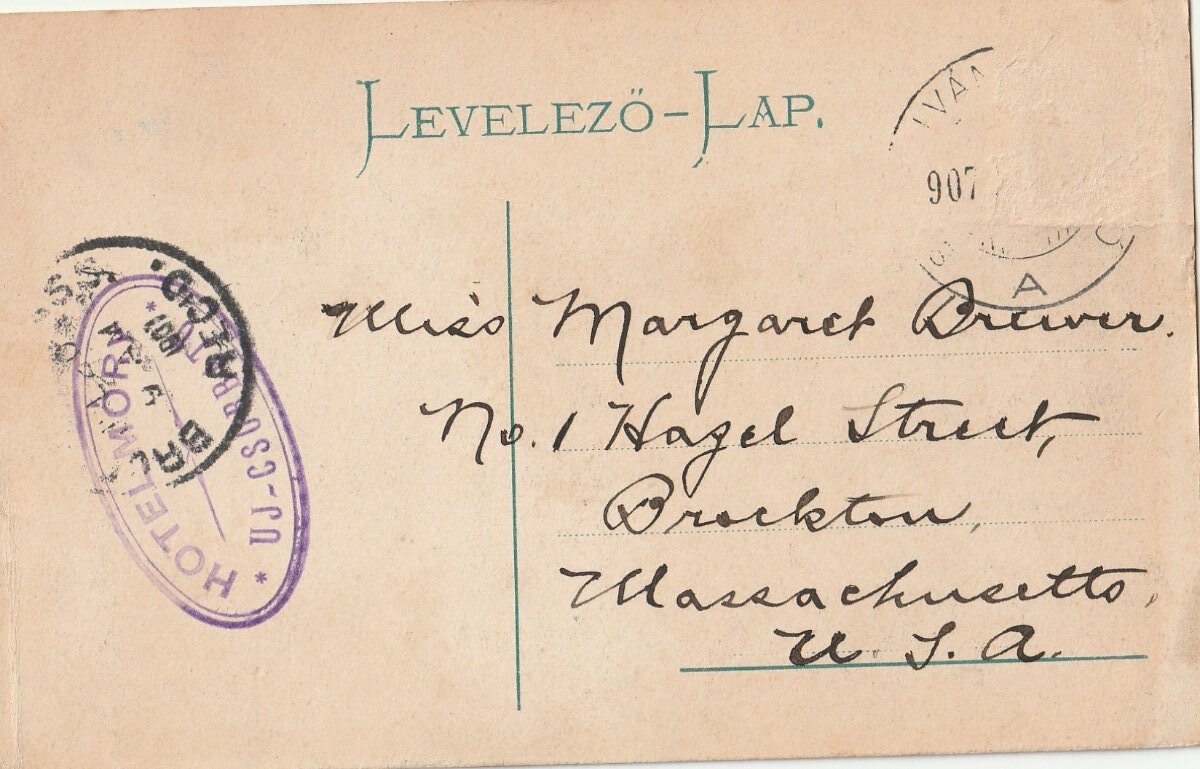 LEVELEZŐ-LAP.
IVÁN
907
A
Miss Margaret Brewer.
No. 1 Hazel Street,
Brockton,
Massachusetts,
U. S. A.
HOTEL MÓRY
* UJ-CSORBATÓ *
REC'D.